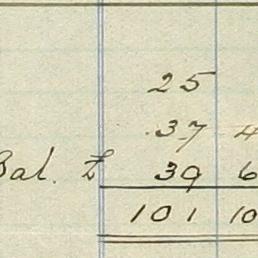 25
37 4
Bal. £ 39 6
101 10